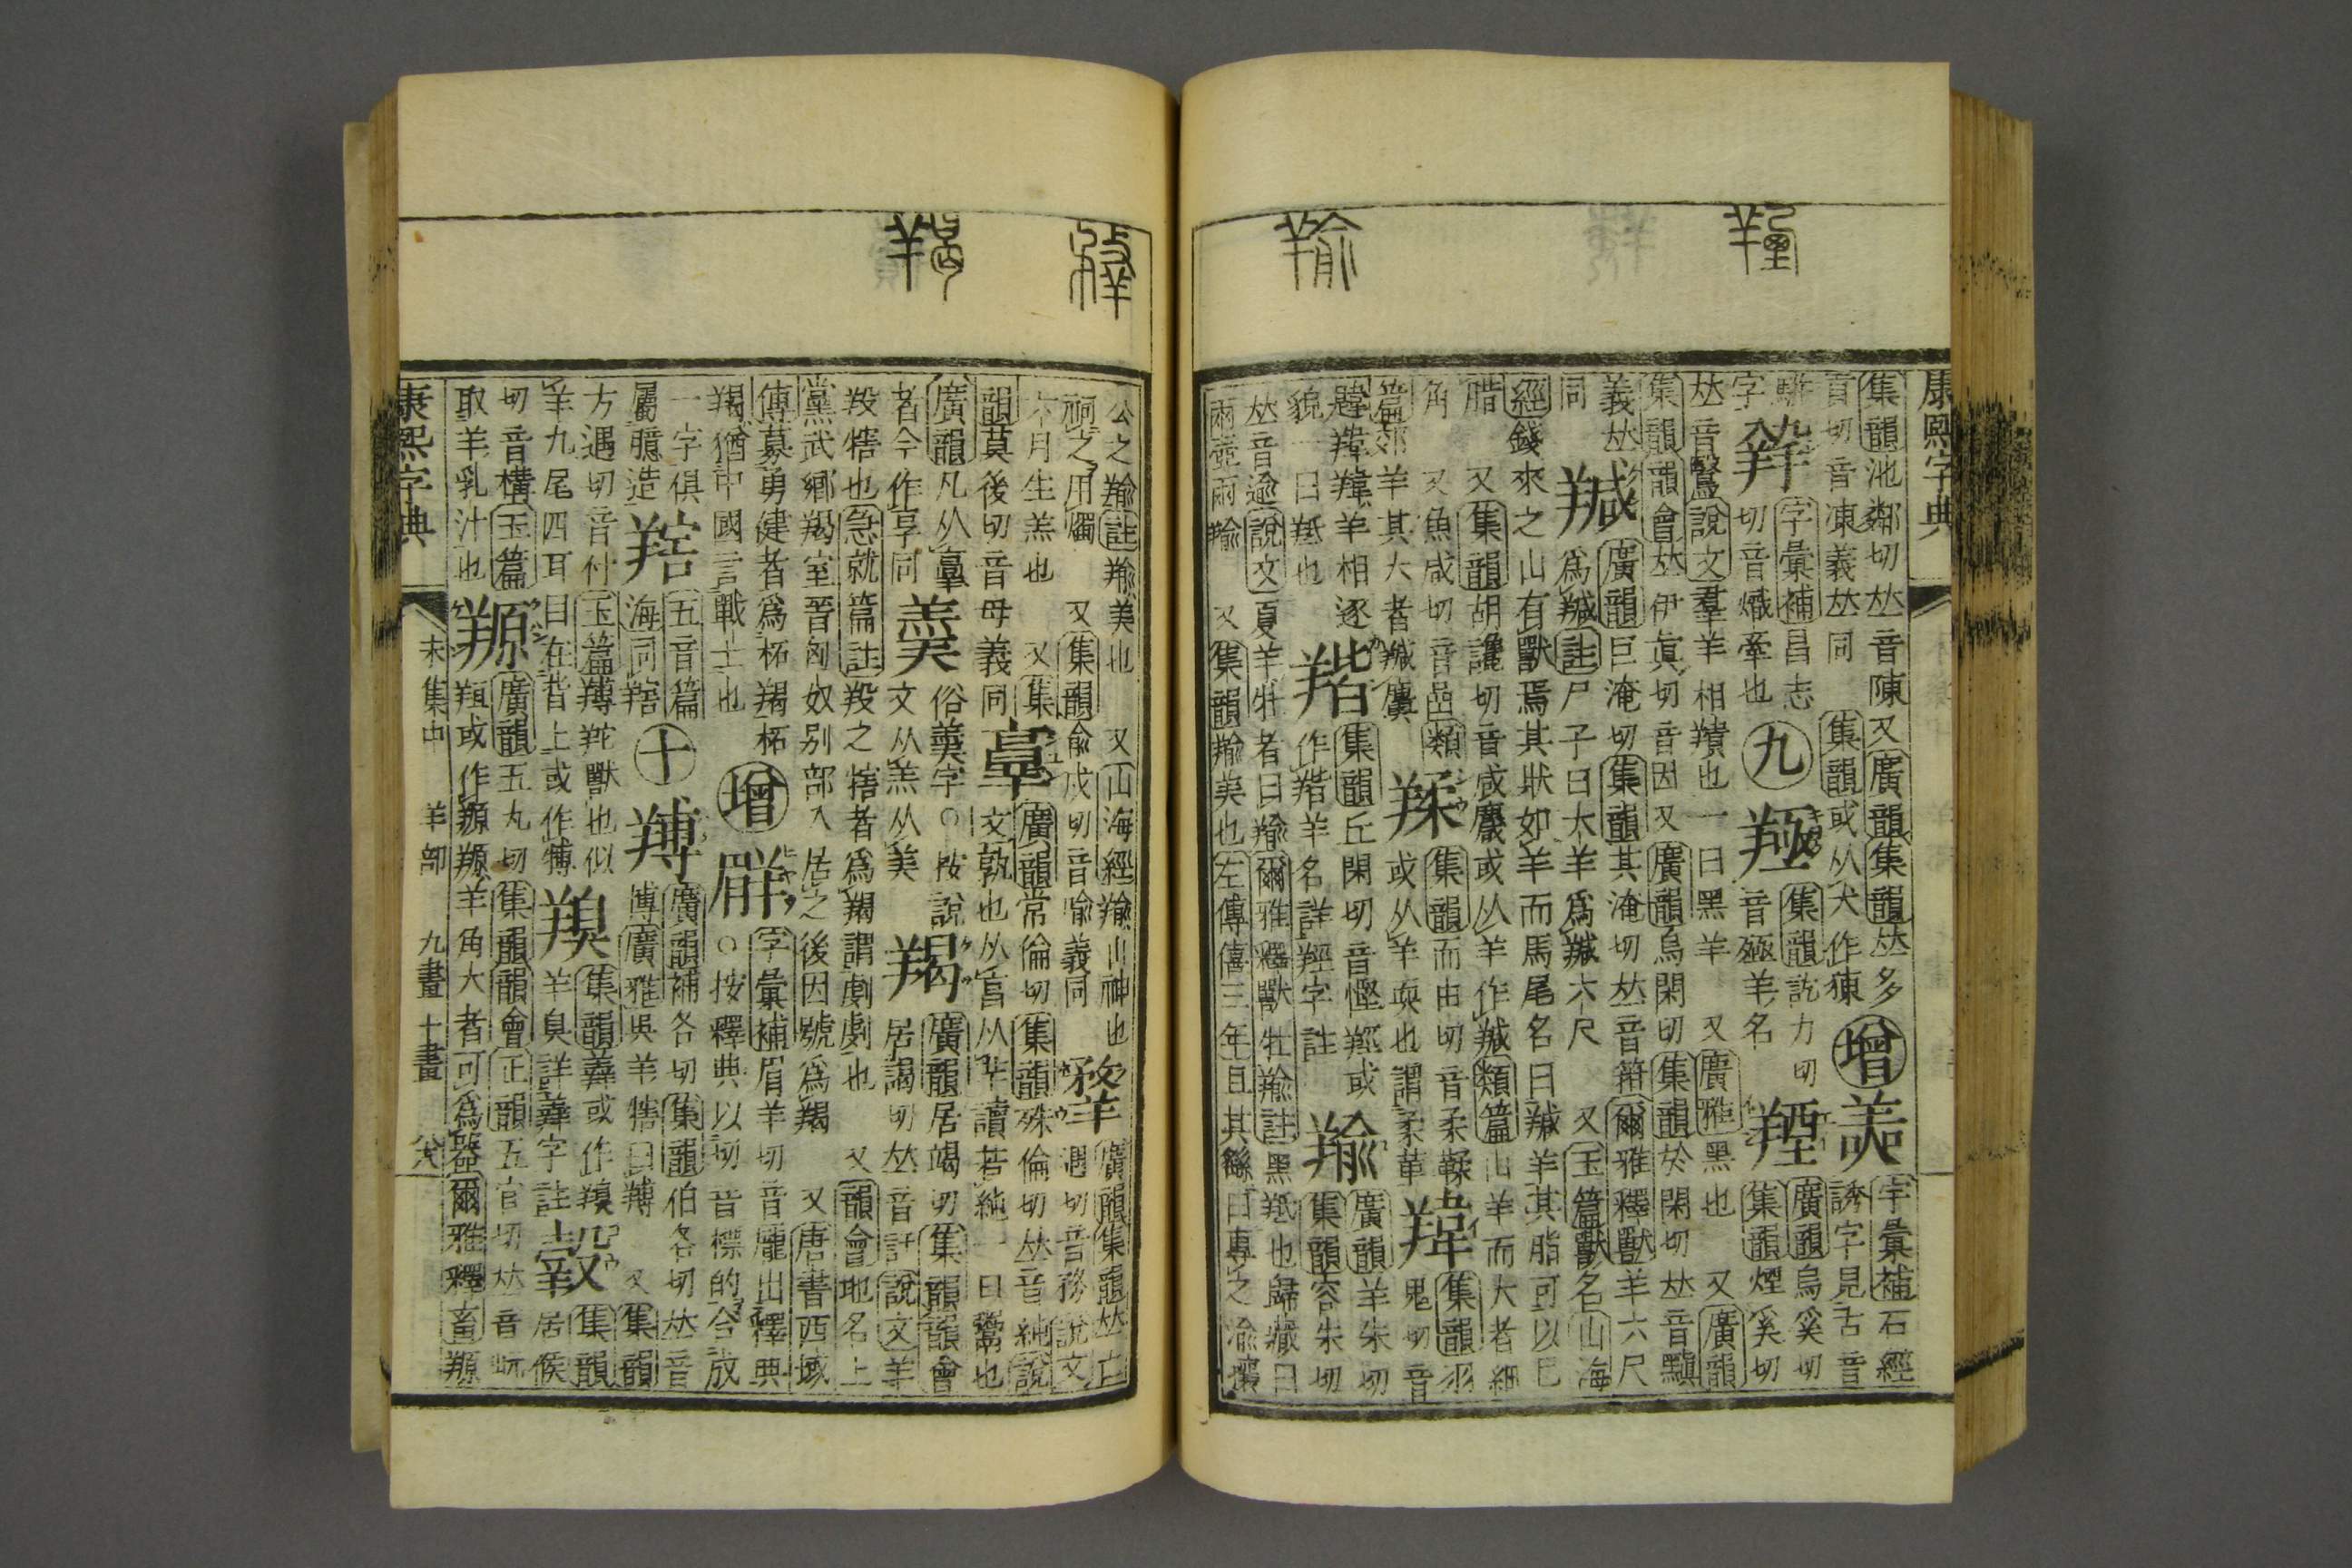 康熙字典
集韻池鄰切𠀤音陳又廣韻集韻𠀤多
貢切音凍義𠀤同 集韻或从犬作𤟮
增
字彙補石經
誘字見古音
駢
字
字彙補昌志
切音熾牽也
九
集韻訖力切
音殛羊名
羥
廣韻烏奚切
集韻煙奚切
𠀤音鷖說文羣羊相羵也一曰黑羊 又廣雅黑也 又廣韻
集韻韻會𠀤伊眞切音因又廣韻烏閑切集韻於閑切𠀤音黰
義𠀤
同
羬
廣韻巨淹切集韻其淹切𠀤音箝爾雅釋獸羊六尺
爲羬註尸子曰大羊爲羬六尺 又玉篇獸名山海
經錢來之山有獸焉其狀如羊而馬尾名曰羬羊其脂可以已
腊 又集韻胡讒切音咸麙或从羊作羬類篇山羊而大者細
角 又魚咸切音嵒類
篇郊羊其大者羬麌
羠
集韻而由切音柔鞣
或从羊耎也謂柔革
集韻羽
鬼切音
韙羊相逐
貌一曰羝也
集韻丘閑切音慳羥或
作羊名詳羥字註
羭
廣韻羊朱切
集韻容朱切
𠀤音逾說文夏羊牡者曰羭爾雅釋獸牡羭註黑羝也歸藏曰
兩壺兩羭 又集韻羭美也左傳僖三年且其繇曰專之渝攘
公之羭註羭美也 又山海經羭山神也
祠之用燭 又集韻兪戍切音喩義同
廣韻集韻𠀤亡
遇切音務說文
六月生羔也 又集
韻莫後切音母義同
𦎫
廣韻常倫切集韻殊倫切𠀤音純說
文孰也从亯从羊讀若純一曰鬻也
廣韻凡从𦎫
者今作享同
羮
俗羹字○按說
文从羔从美
羯
廣韻居竭切集韻韻會
居謁切𠀤音訐說文羊
羖犗也急就篇註羖之犗者爲羯謂劇也 又韻會地名上
黨武鄉羯室晉匈奴別部入居之後因號爲羯 又唐書西域
傳募勇健者爲柘羯柘
羯猶中國言戰士也
增
字彙補眉羊切音厖出釋典
○按釋典以切音標的合成
一字俱
屬臆造
五音篇
海同
十
廣韻補各切集韻伯各切𠀤音
博廣雅吳羊犗曰 又集韻
方遇切音付玉篇䍸獸也似
羊九尾四耳目在背上或作犕
集韻羴或作羶
羊臭詳羴字註
集韻
居侯
切音構玉篇
取羊乳汁也
羱
廣韻五丸切集韻韻會正韻五官切𠀤音岏
或作羊角大者可爲器爾雅釋畜羱
康熙字典
未集中 羊部 九畫 十畫